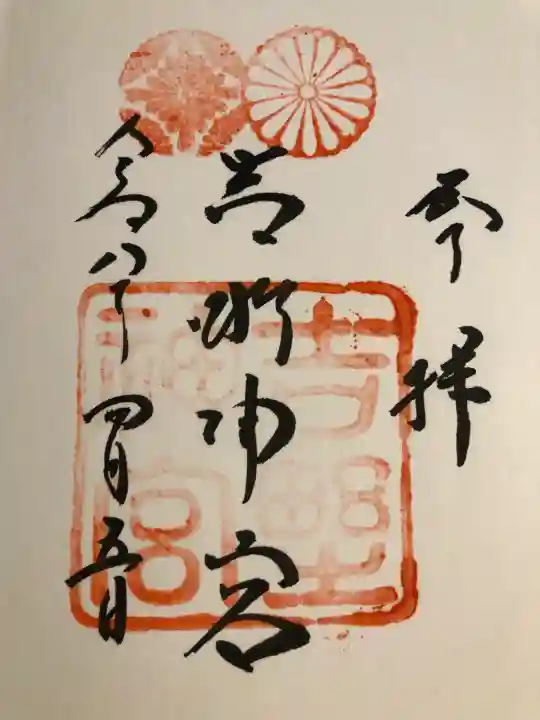 奉拝
吉野神宮
令和八年四月五日
吉野
神宮